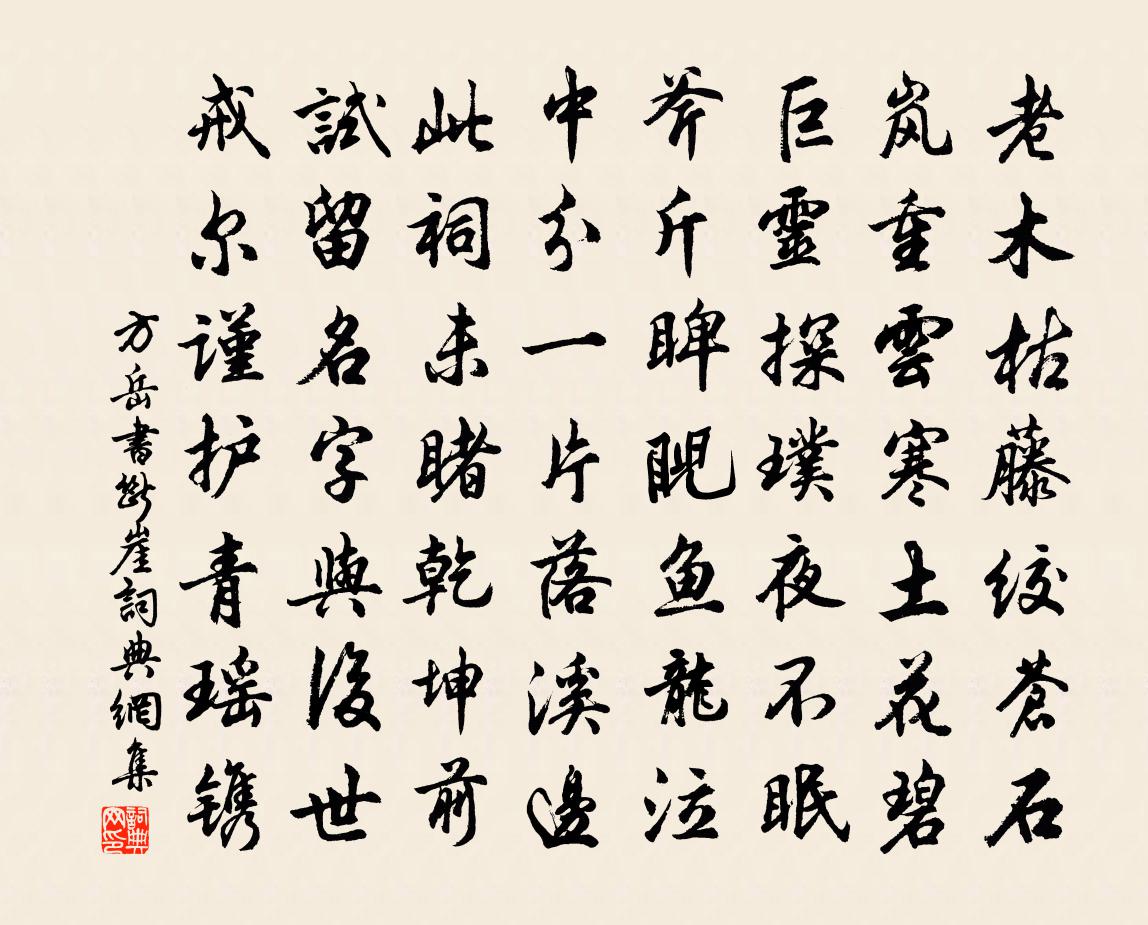 老木枯藤绞苍石
岚重雲寒土花碧
巨靈探璞夜不眠
斧斤睥睨鱼龍泣
中分一片落溪邊
此祠未睹乾坤前
試留名字與後世
戒尔谨护青瑶镌
方岳書断崖詞典網集
詞典网印